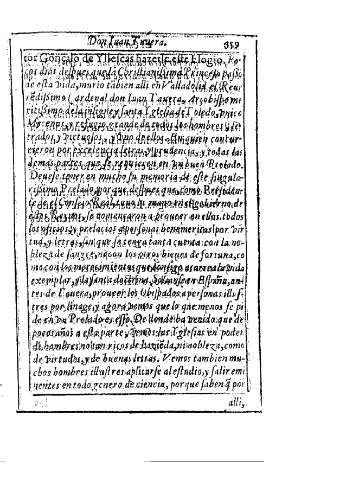 Don Iuan Tauera. 359
tor Gonçalo de Yllescas hazerle este Elogio. Po-
cos dias despues que la Christianissima Princesa passò
de esta vida, murio tābien alli en Valladolid el Reue
rēdissimo Cardenal don Iuan Tauera, Arçobispo me
ritissimo de la insigne y santa Yglesia de Toledo, vnico
Mecenas, y refugio grande de todos los hombres le-
trados y virtuosos, como de aquellos en quien concur-
rieron por excelencia letras, y prudencia, y todas las
demas partes que se requieren en vn buen Prelado.
Deuese tener en mucho la memoria de este singula-
rissimo Prelado, por que despues que como Presiden-
te de el Consejo Real tuuo en su mano el gouierno de
estos Reynos, se començaron a proueer en ellos todos
los oficios y prelacias a personas benemeritas por vir
tud, y letras, sin que se tenga tanta cuenta con la no-
bleza de sangre, ni con los otros bienes de fortuna, co
mo con los merecimientos
exemplar, y la santa doctrina. Solianse en España, an-
tes de Tauera, proueer los Obispados a personas illus-
tres por linage, y agora vemos que lo que menos se pi
de en vn Prelado es esso. De donde ha venido que de
pocos años a esta parte, vemos las Yglesias en poder
de hombres no tan ricos de haziēda, ni nobleza, como
de virtudes, y de buenas letras. Vemos tambien mu-
chos hombres illustres aplicarse al estudio, y salir emi
nentes en todo genero de ciencia, porque saben q̄ por
alli,